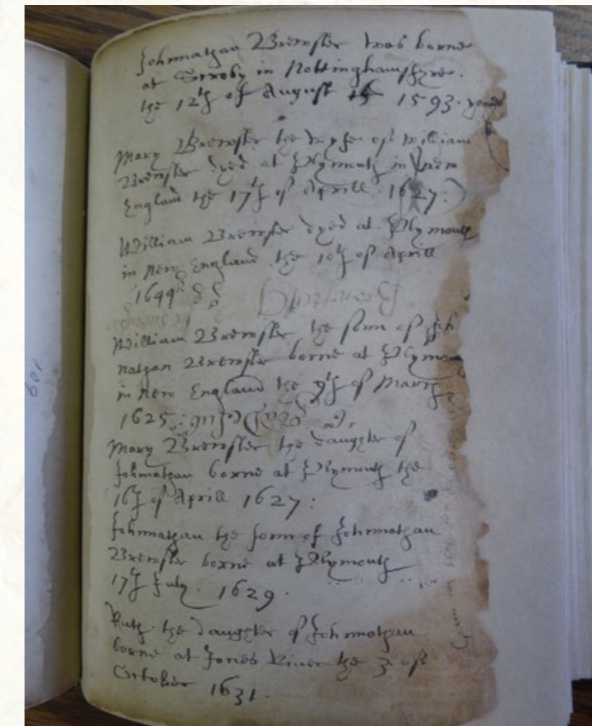 Johnnathan Brewster was borne
at Scroby in Nottinghamshyre.
the 12th of August 1593. yeare
Mary Brewster the wyfe of William
Brewster dyed at Plymouth in New
England the 17th of Aprill 1627:
William Brewster dyed at Plymouth
in New England the 10th of Aprill
1644
William Brewster the sonn of Joh
nathan Brewster borne at Plymou
in New England the 9th of March
1625:
Mary Brewster the daughter of
Johnnathan borne at Plymouth the
16th of Aprill 1627:
Johnnathan the sonn of Johnnathan
Brewster borne at Plymouth
17th July. 1629.
Ruth the daughter of Johnnathan
borne at Jones River the 3 of
October 1631.
109